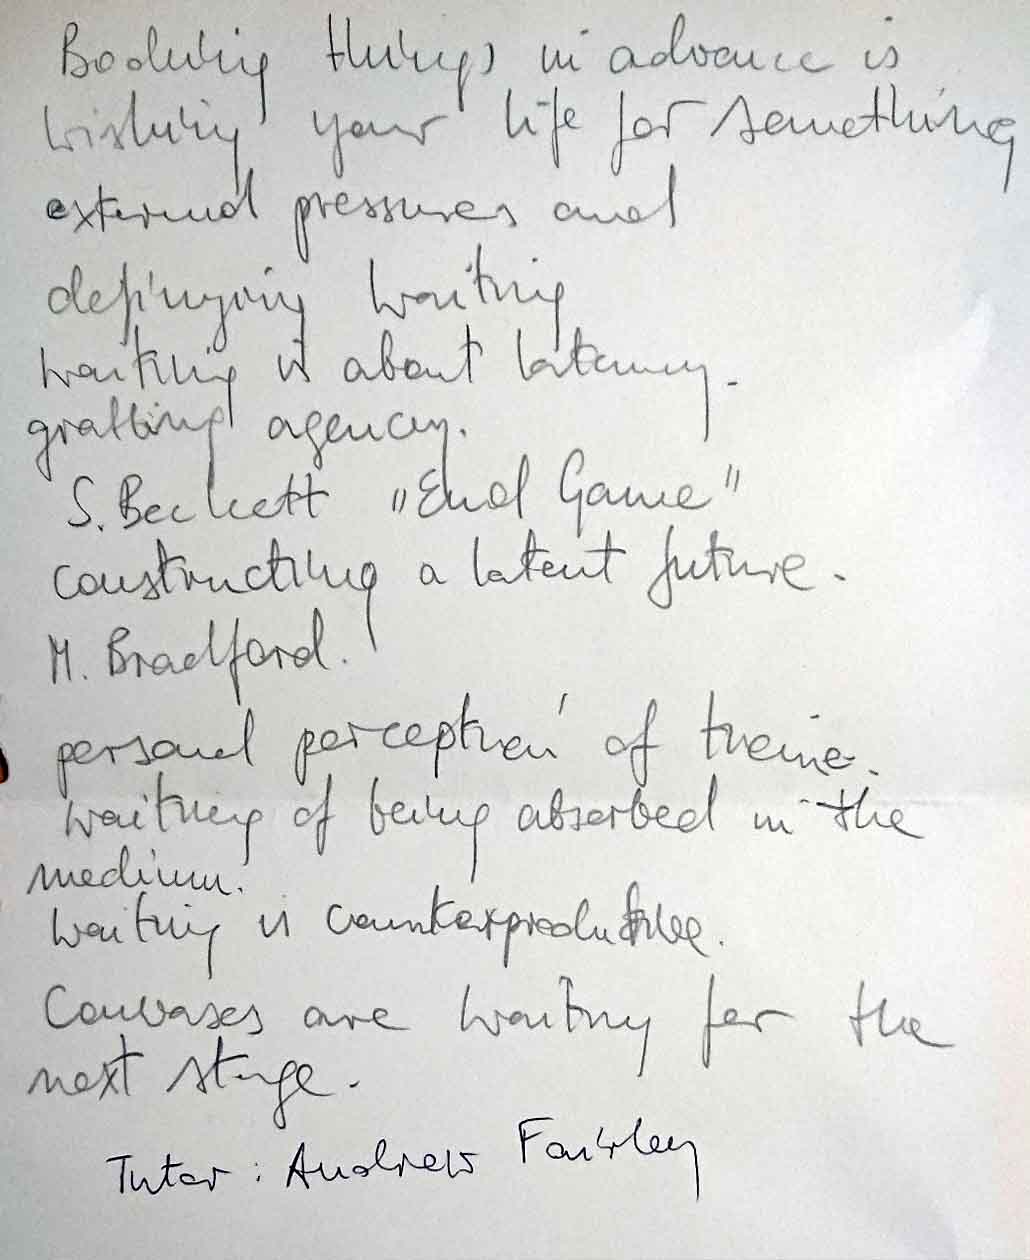 Booking things in advance is
wishing your life for something
external pressures and
definying waiting
waiting is about latency.
grabbing agency.
S. Beckett "End Game"
constructing a latent future.
M. Bradford.
personal perception of theme.
waiting of being absorbed in the
medium.
waiting is counterproductive.
Canvases are waiting for the
next stage.
Tutor: Andrew Fairley